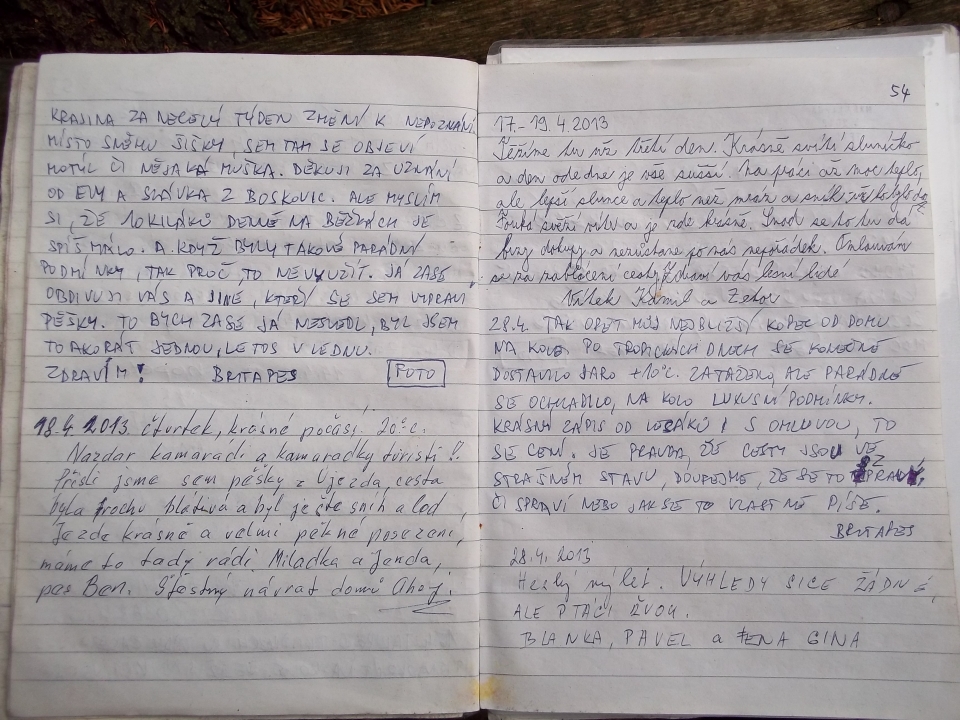 KRAJINA ZA NECELÝ TÝDEN ZMĚNÍ K NEPOZNÁNÍ
MÍSTO SNĚHU ŠIŠKY, SEM TAM SE OBJEVÍ
MOTÝL ČI NĚJAKÁ MUŠKA. DĚKUJI ZA UZNÁNÍ
OD EVY A SLÁVKA Z BOSKOVIC. ALE MYSLÍM
SI, ŽE 10 KILÁKŮ DENNĚ NA BĚŽKÁCH JE
SPÍŠ MÁLO. A KDYŽ BYLY TAKOVÉ PARÁDNÍ
PODMÍNKY, TAK PROČ TO NEVYUŽÍT. JÁ ZASE
OBDIVUJI VÁS A JINÉ, KTEŘÍ SE SEM VYPRAVÍ
PĚŠKY. TO BYCH ZASE JÁ NESVEDL, BYL JSEM
TO AKORÁT JEDNOU, LETOS V LEDNU.
ZDRAVÍM! BRITAPES FOTO
18.4.2013. čtvrtek, krásné počasí 20°C.
Nazdar kamarádi a kamarádky turisti!!
Přišli jsme sem pěšky z Újezda, cesta
byla trochu blátivá a byl ještě sníh a led.
Je zde krásně a velmi pěkné posezení,
máme to tady rádi. Miladka a Jenda,
pes Ben. Šťastný návrat domů Ahoj!
54
17.-19.4.2013
Těžíme tu už třetí den. Krásně svítí sluníčko
a den ode dne je vše sušší. Na práci až moc teplo,
ale lepší slunce a teplo než mráz a sníh
Fouká svěží vítr a je zde krásně. Snad se to tu dá
brzy dohromady a nezůstane po nás nepořádek. Omlouvám
se za cesty. Zdraví vás lesní lidé
Vítek Kamil a
28.4. TAK OPĚT MŮJ NEJBLIŽŠÍ KOPEC OD DOMU
NA KOLE. PO TROPICKÝCH DNECH SE KONEČNĚ
DOSTAVILO JARO +10°C. ZATAŽENO, ALE PARÁDNĚ
SE OCHLADILO, NA KOLO LUXUSNÍ PODMÍNKY.
KRÁSNÝ ZÁPIS OD LESÁKŮ I S OMLUVOU, TO
SE CENÍ. JE PRAVDA, ŽE CESTY JSOU VE
STRAŠNÉM STAVU, DOUFEJME, ŽE SE TO SPRAVÍ,
ČI SPRAVÍ NEBO JAK SE TO VLASTNĚ PÍŠE.
BRITAPES
28.4. 2013
Hezký výlet. VÝHLEDY SICE ŽÁDNÉ,
ALE PTÁCI ŘVOU.
BLANKA, PAVEL a FENA GINA